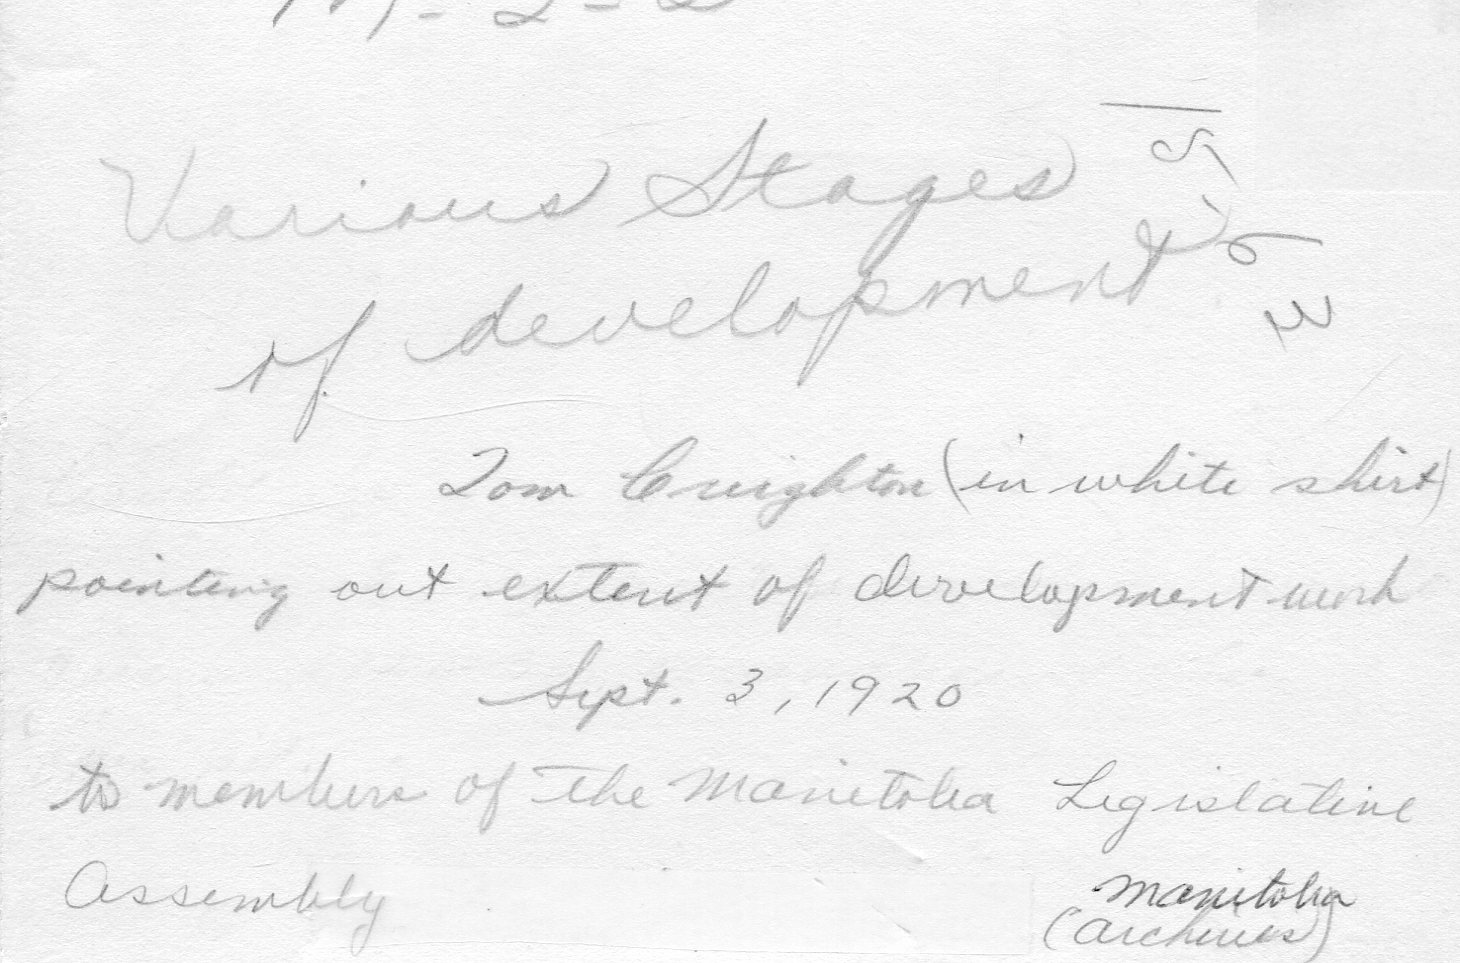 Various Stages
of development
Tom Creighton (in white shirt)
pointing out extent of development work
Sept. 3, 1920
to members of the Manitoba Legislative
Assembly
Manitoba
(Archives)